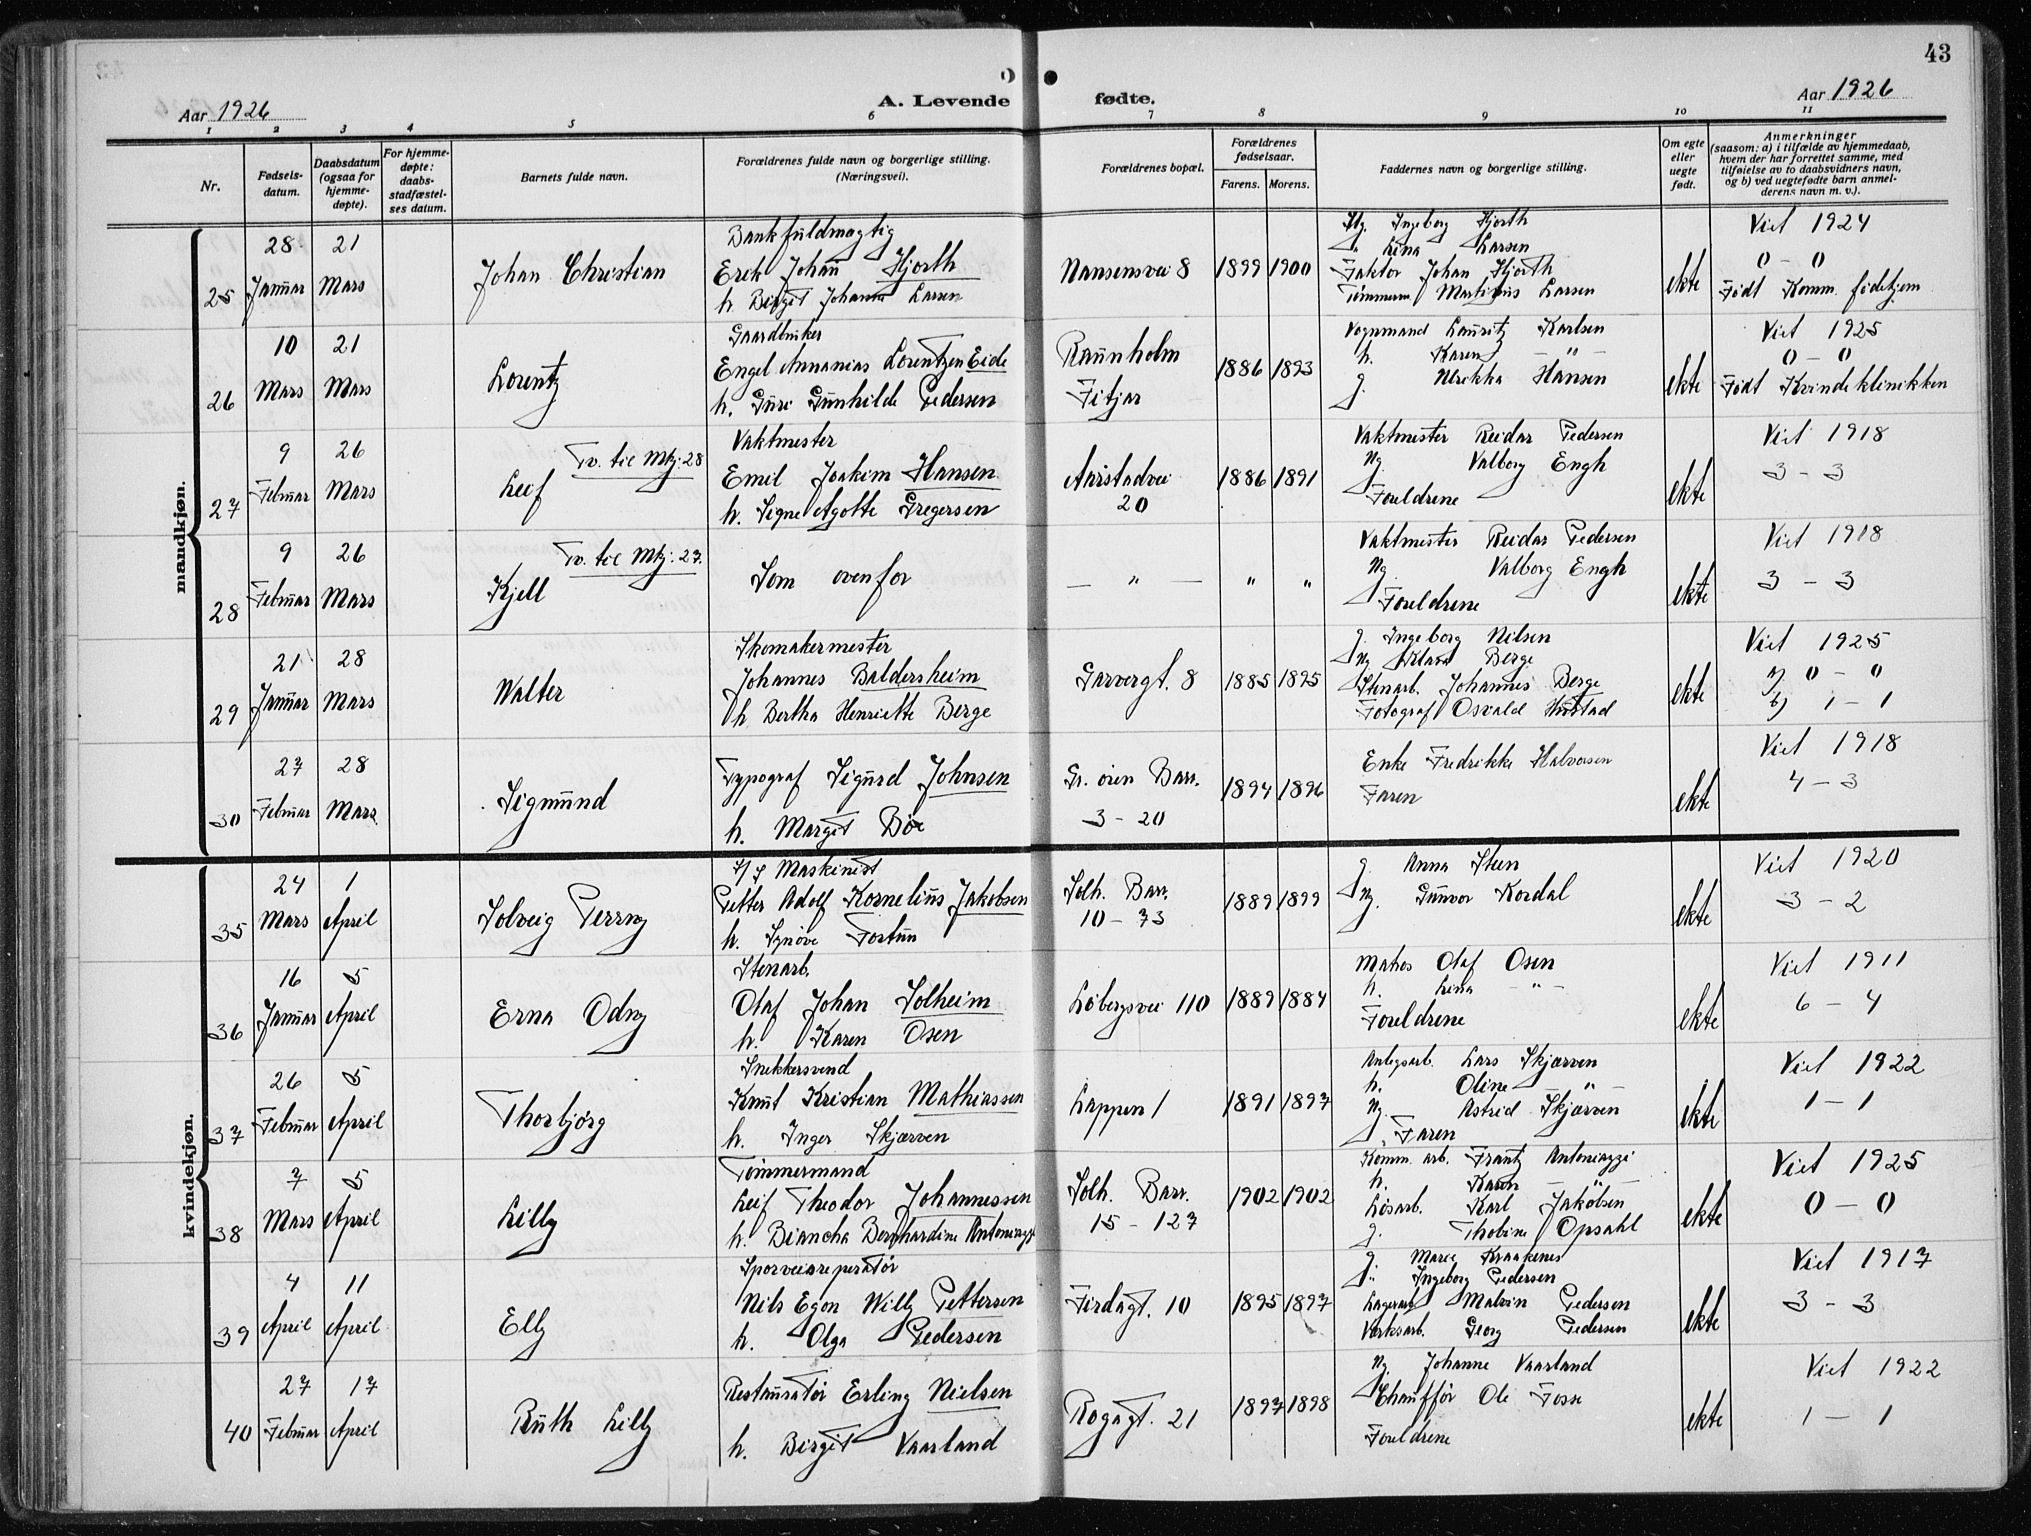 43
Aar 1926
A. Levende fødte.
Aar 1926
1 2 3 4 5 6 7 8 9 10 11
Nr.
Fødsels-
datum.
Daabsdatum
(ogsaa for
hjemme-
døpte).
For hjemme-
døpte:
daabs-
stadfæstel-
ses datum.
Barnets fulde navn.
Forældrenes fulde navn og borgerlige stilling.
(Næringsvei).
Forældrenes bopæl.
Forældrenes
fødselsaar.
Farens. Morens.
Faddernes navn og borgerlige stilling.
Om egte
eller
uegte
født.
Anmerkninger
(saasom: a) i tilfælde av hjemmedaab,
hvem der har forrettet samme, med
tilføielse av to daabsvidners navn,
og b) ved uegtefødte barn anmel-
derens navn m. v.).
mandkjøn.
25
28
Januar
21
Mars
Johan Christian
Bankfuldmægtig
Erik Johan Hjorth
h. Birgit Johanne Larsen
Nansensvei 8
1899 1900
Ug. Ingeborg Hjorth
" Lina Larsen
Faktor Johan Hjorth
Tømmerm. Martinus Larsen
ekte
Viet 1924
0 - 0
Født Komm. fødehjem
26
10
Mars
21
Mars
Lorentz
Gaardbruker
Engel Annanias Lorentzen Eide
h. Guri Gunhilde Pedersen
Raunholm
Fitjar
1886 1893
Vognmand Lauritz Karlsen
h. Karen - " -
g. Ulrikka Hansen
ekte
Viet 1925
0 - 0
Født Kvindeklinikken
27
9
Februar
26
Mars
Tv. til Mkj: 28
Leif
Vaktmester
Emil Joakim Hansen
h. Signe Agotte Gregersen
Aarstadvei
20
1886 1891
Vaktmester Reidar Pedersen
Ug. Valborg Engh
Foreldrene
ekte
Viet 1918
3 - 3
28
9
Februar
26
Mars
Tv. til Mkj: 27.
Kjell
Som ovenfor
- " - " "
Vaktmester Reidar Pedersen
Ug Valborg Engh
Foreldrene
ekte
Viet 1918
3 - 3
29
21
Januar
28
Mars
Walter
Skomakermester
Johannes Baldersheim
h Bertha Henriette Berge
Garvergt. 8
1885 1895
g. Ingeborg Nilsen
Ug Klara Berge
Stenarb. Johannes Berge
Fotograf Osvald Hustad
ekte
Viet 1925
a) 0 - 0
b) 1 - 1
30
27
Februar
28
Mars
Sigmund
Typograf Sigurd Johnsen
h. Margit Bøe
Gr. ören Barr.
3 - 20
1894 1896
Enke Fredrikke Halvorsen
Faren
ekte
Viet 1918
4 - 3
kvindekjøn.
35
24
Mars
1
April
Solveig Perrny
Maskinist
Petter Adolf Kornelius Jakobsen
h. Synöve Fortun
Solh. Barr.
10 - 73
1889 1899
g. Anna Steen
Ug. Gunvor Kordal
ekte
Viet 1920
3 - 2
36
16
Januar
5
April
Erna Odny
Stenarb.
Olaf Johan Solheim
h. Karen Osen
Løbergsvei 110
1889 1884
Matros Olaf Osen
h. Lina - " -
Foreldrene
ekte
Viet 1911
6 - 4
37
26
Februar
5
April
Thorbjörg
Snekkersvend
Knut Kristian Mathiassen
h. Inger Skjærven
Lappen 1
1891 1897
Anlegsarb. Lars Skjærven
h. Oline - " -
Ug. Astrid Skjærven
Faren
ekte
Viet 1922
1 - 1
38
7
Mars
5
April
Lilly
Tömmermand
Leif Theodor Johannessen
h. Biancha Bernhardine Antoniazzi
Solh. Barr.
15 - 127
1902 1902
Komm. arb. Frantz Antoniazzi
h. Karen - " -
Løsarb. Karl Jakobsen
g. Thobine Opsahl
ekte
Viet 1925
0 - 0
39
4
April
11
April
Elly
Sporveisreperatør
Nils Egon Willy Pettersen
h. Olga Pedersen
Firdagt. 10
1895 1897
g. Marie Kraakenes
g. Ingeborg Pedersen
Lagerarb. Malvin Pedersen
Verksarb. Georg Pedersen
ekte
Viet 1917
3 - 3
40
27
Februar
17
April
Ruth Lilly
Restauratør Erling Nielsen
h. Birgit Vaarland
Rogagt. 21
1897 1898
Ug Johanne Vaarland
Chauffør Ole Fosse
Foreldrene
ekte
Viet 1922
1 - 1